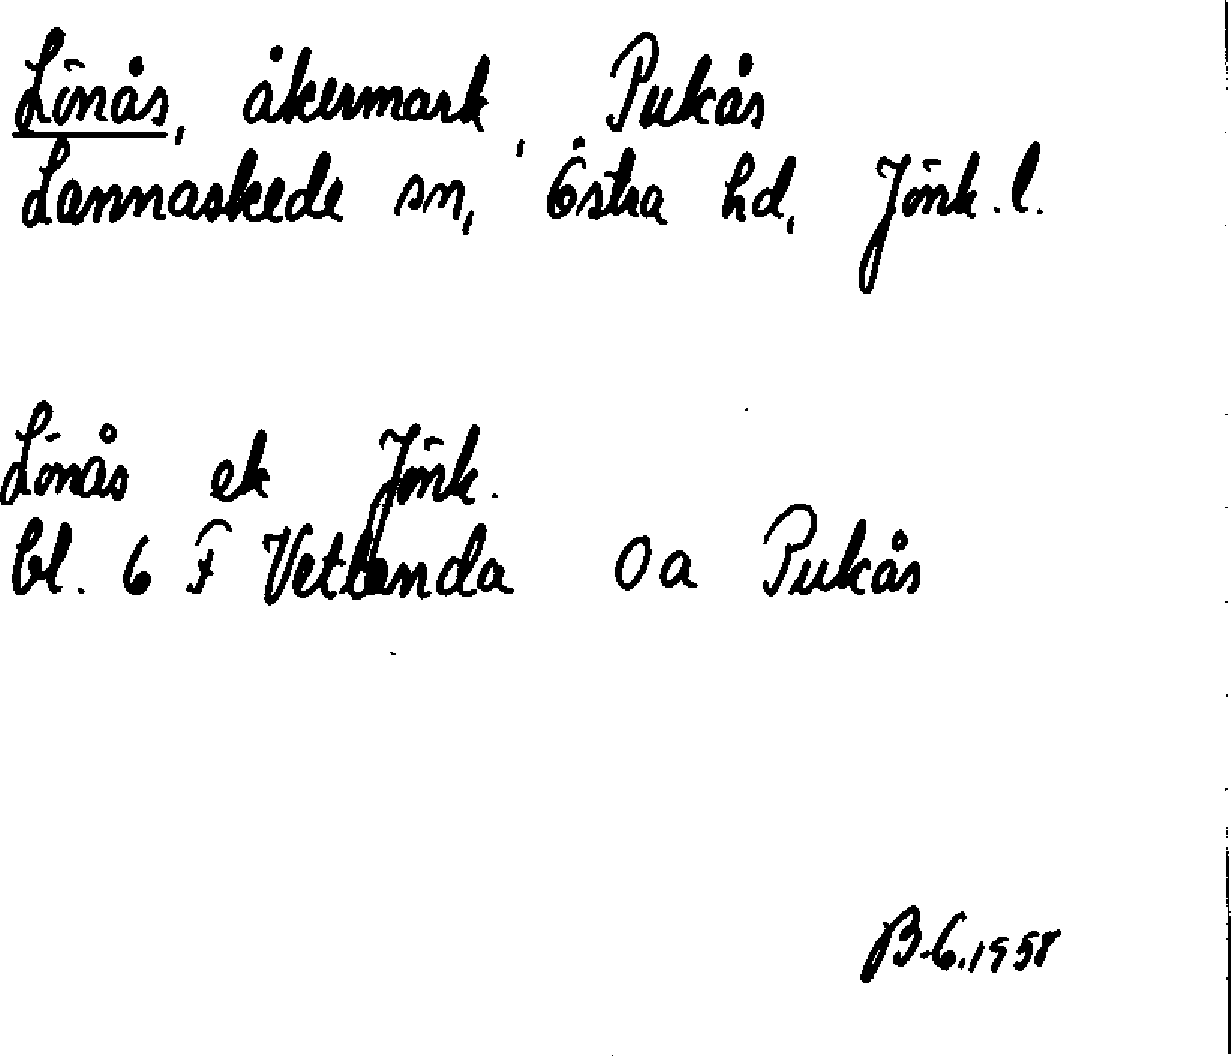 Lönås, åkermark, Pukås
Lannaskede sn, Östra hd, Jönk. l.
Lönås ek Jönk.
bl. 6 F Vetlanda 0a Pukås
B.G. 1958